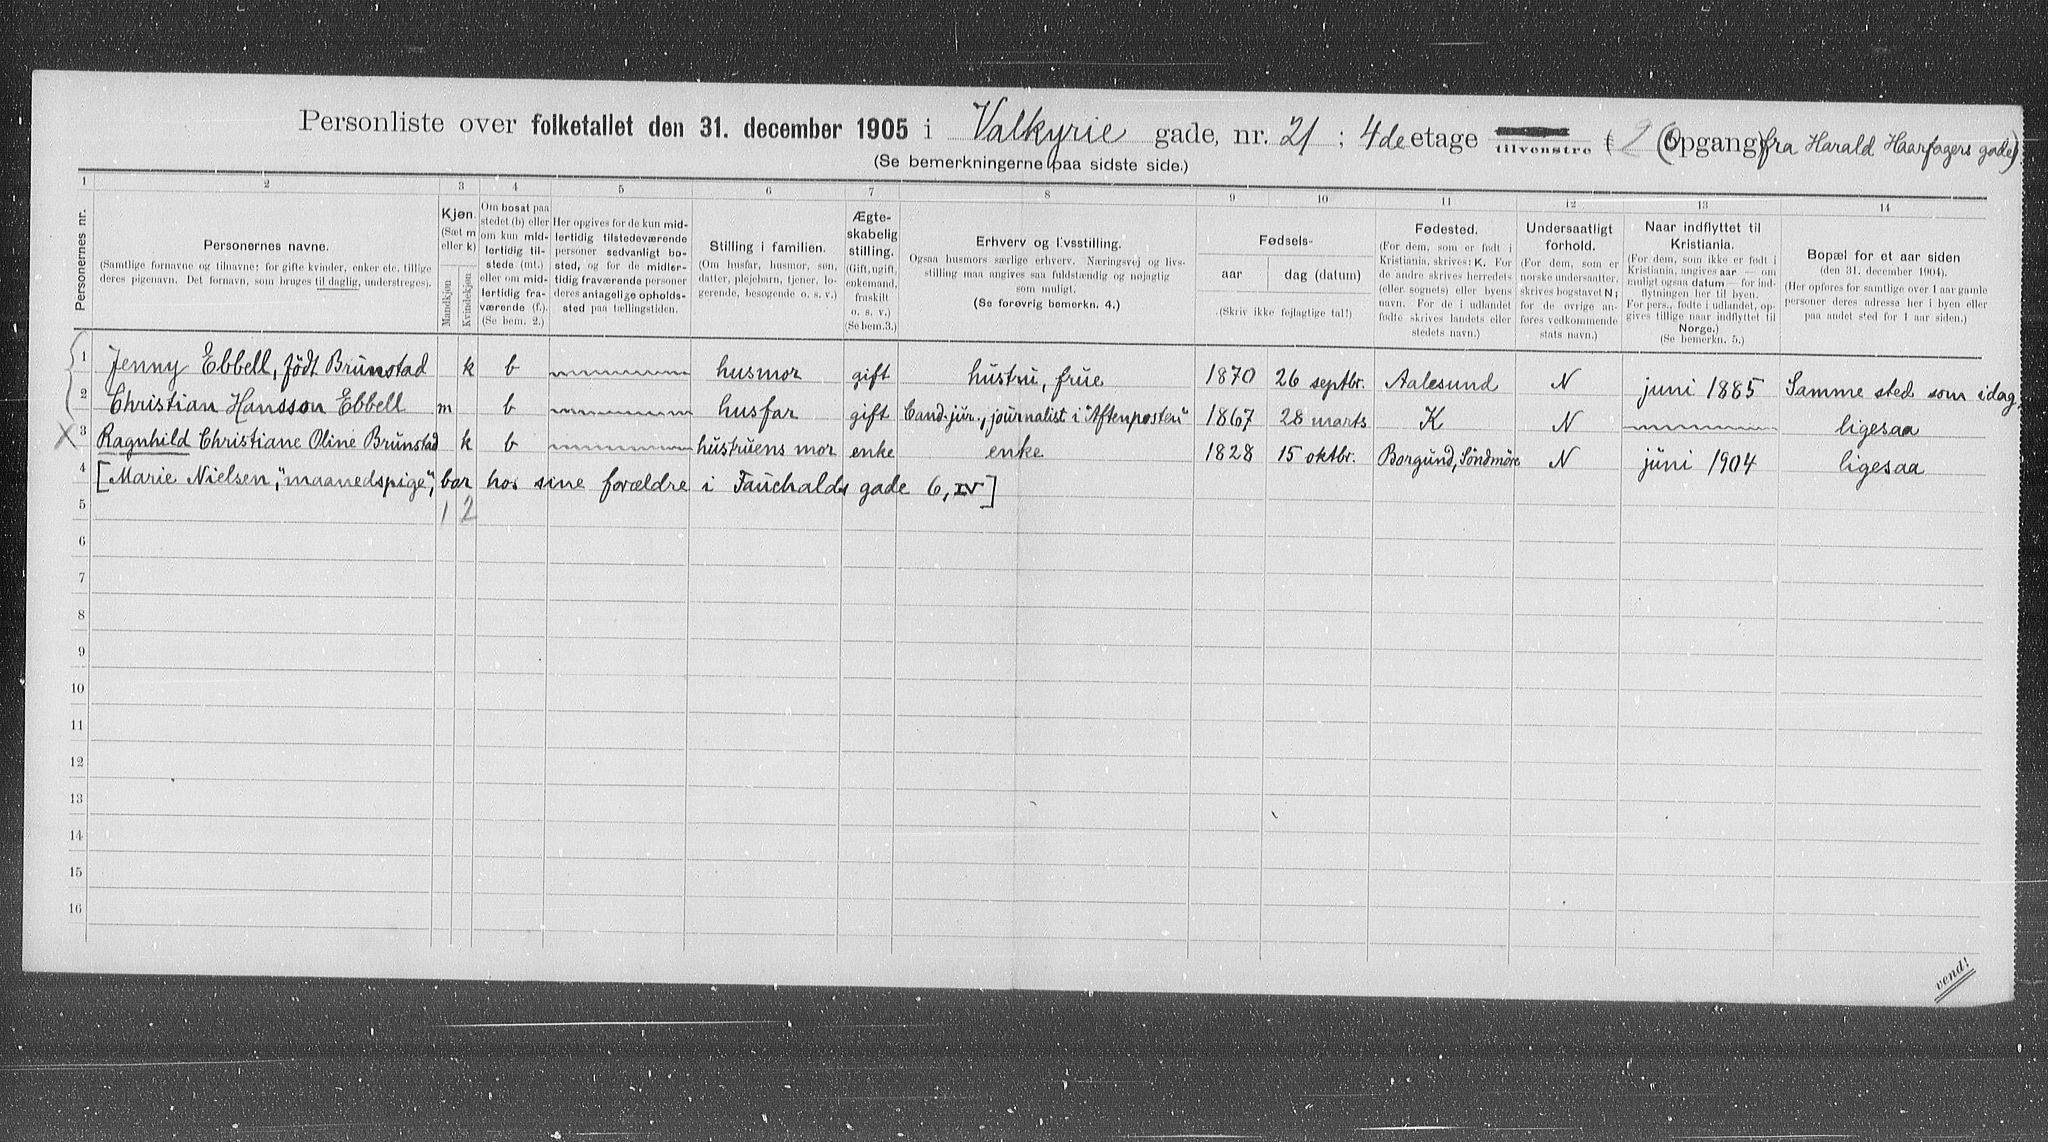 Personliste over folketallet den 31. december 1905 i Valkyrie gade, nr. 21 ; 4de etage tilvenstre 2 (opgang fra Harald Haarfagers gade)
(Se bemerkningerne paa sidste side.)
1 2 3 4 5 6 7 8 9 10 11 12 13 14
Personernes nr.
Personernes navne.
(Samtlige fornavne og tilnavne; for gifte kvinder, enker etc. tillige
deres pigenavn. Det fornavn, som bruges til daglig, understreges).
Kjøn.
(Sæt m
eller k)
Mandkjøn
Kvindekjøn
Om bosat paa
stedet (b) eller
om kun mid-
lertidig til-
stede (mt.)
eller om mid-
lertidig fra-
værende (f.).
(Se bem. 2.)
Her opgives for de kun mid-
lertidig tilstedeværende
personer sedvanligt bo-
sted, og for de midler-
tidig fraværende personer
deres antagelige opholds-
sted paa tællingstiden.
Stilling i familien.
(Om husfar, husmor, søn,
datter, plejebarn, tjener, lo-
gerende, besøgende o. s. v.)
Ægte-
skabelig
stilling.
(Gift, ugift,
enkemand,
fraskilt
o. s. v.)
(Se bem.3.)
Erhverv og livsstilling.
Ogsaa husmors særlige erhverv. Næringsvej og livs-
stilling maa angives saa fuldstændig og nøjagtig
som muligt.
(Se forøvrig bemerkn. 4.)
Fødsels-
aar
dag (datum)
(Skriv ikke fejlagtige tal!)
Fødested.
(For dem, som er født i
Kristiania, skrives: K. For
de andre skrives herredets
(eller sognets) eller byens
navn. For de i udlandet
fødte skrives landets eller
stedets navn.)
Undersaatligt
forhold.
(For dem, som er
norske undersaatter,
skrives bogstavet N;
for de øvrige an-
føres vedkommende
stats navn.)
Naar indflyttet til
Kristiania.
(For dem, som ikke er født i
Kristiania, angives aar — om
muligt ogsaa datum — for ind-
flytningen her til byen.
For pers., fødte i udlandet, op-
gives tillige naar indflyttet til
Norge.)
(Se bemerkn. 5.)
Bopæl for et aar siden
(den 31. december 1904).
(Her opføres for samtlige over 1 aar gamle
personer deres adresse her i byen eller
paa andet sted for 1 aar siden.)
1 Jenny Ebbell, født Brunstad k b husmor gift hustru, frue 1870 26 septbr. Aalesund N juni 1885 Samme sted som idag
2 Christian Hansson Ebbell m b husfar gift Cand. jur., journalist i "Aftenposten" 1867 28 marts K N ligesaa
X 3 Ragnhild Christiane Oline Brunstad k b hustruens mor enke enke 1828 15 oktbr. Borgund, Söndmöre N juni 1904 ligesaa
4 [Marie Nielsen, "maanedspige", bor hos sine forældre i Fauchalds gade 6, IV]
5 1 2
6
7
8
9
10
11
12
13
14
15
16
vend!